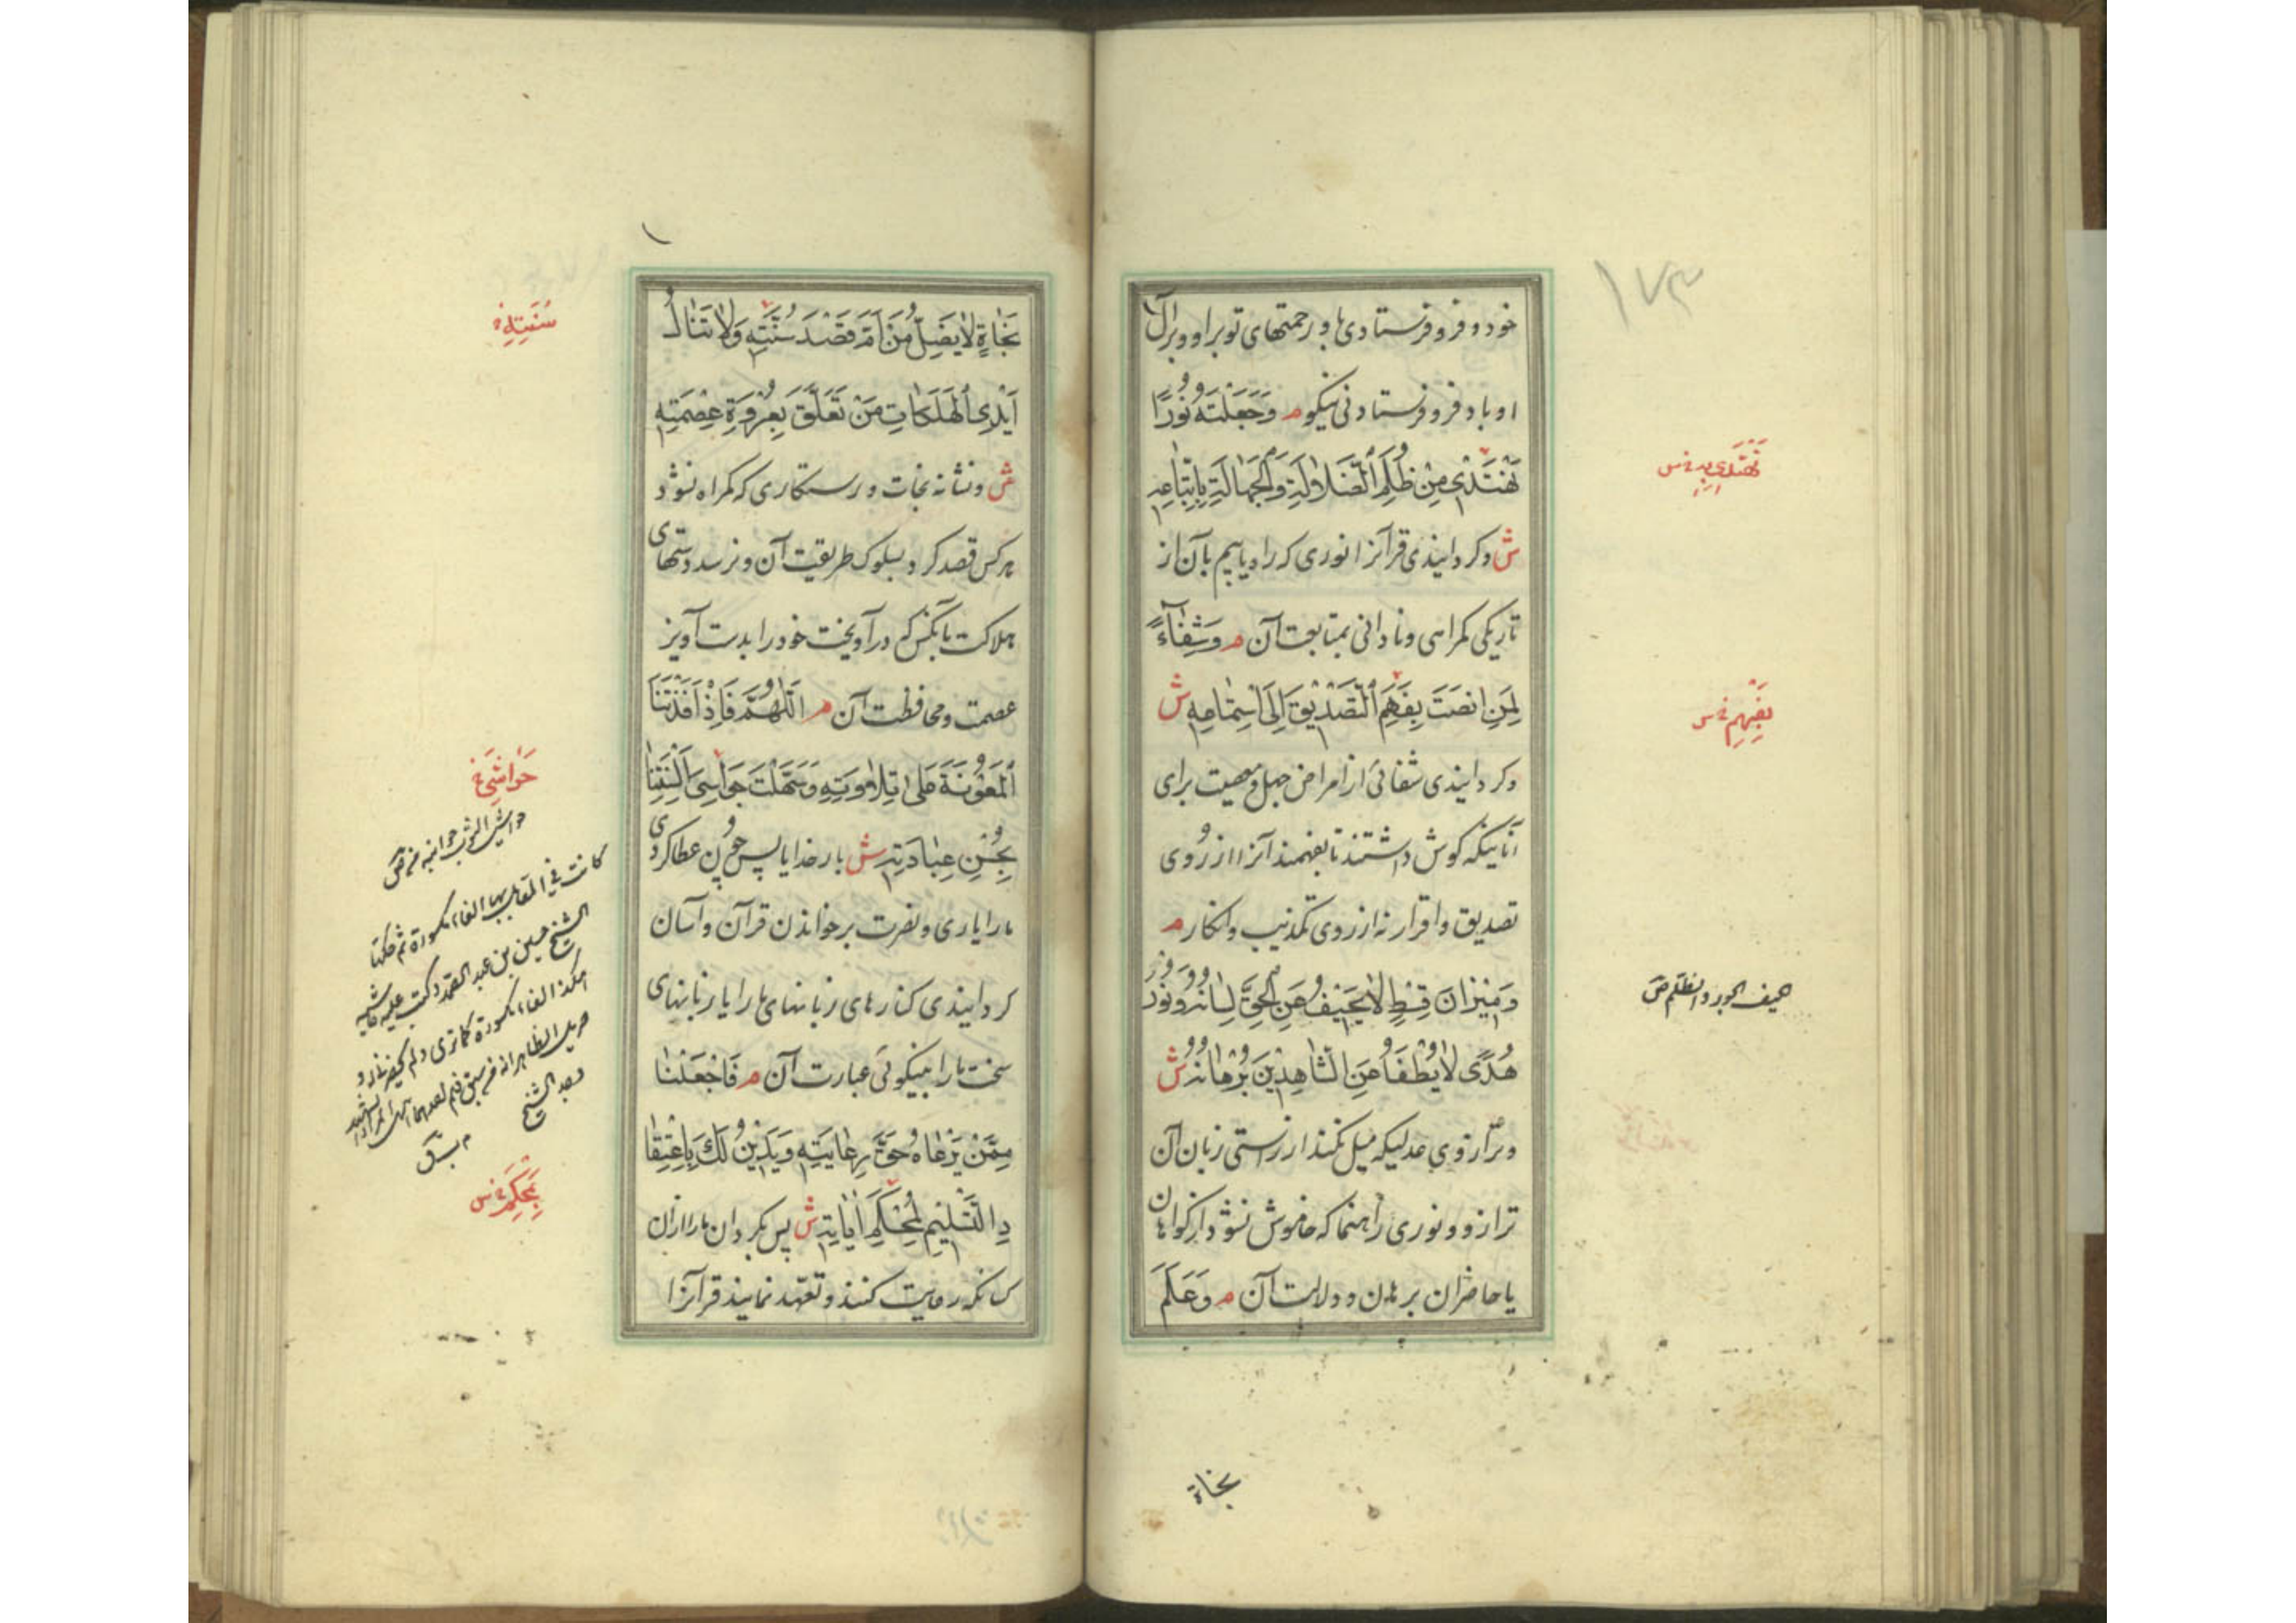 ۱۷۳
خود و فرو فرستادی با و رحمتهای تو براو و برآل
او باد فرو فرستادنی نیکو م وَجَعَلْتَهُ نُورًا
نَهْتَدٖی مِنْ ظُلَمِ الضَّلاٰلَةِ وَالْجَهٰالَةِ بِاتِّبٰاعِهِ
ش و کردانیدی قرآنرا نوری که راه یابیم بآن از
تاریکی کمراهی و نادانی بمتابعت آن م وَشِفٰاءً
لِمَنِ انصَتَ بِفَهَمِ التَّصْدٖیقِ اِلَی اسْتِمٰاعِهِ ش
و کردانیدی شفائی از امراض جهل و معصیت برای
آنانیکه کوش داشتند تا بفهمند آنرا از روی
تصدیق و اقرار نه از روی تکذیب و انکار م
وَمٖیزٰانَ قِسْطٍ لاٰ یَحٖیفُ عَنِ الْحَقِّ لِسٰانُهُ وَنُورَ
هُدًی لاٰ یُطْفَأُ عَنِ الشّٰاهِدٖینَ بُرْهٰانُهُ ش
و ترازوی عدلیکه میل نکند از راستی زبان آن
ترازو و نوری راهنما که خاموش نشود از کواهان
یا حاضران برهان و دلالت آن م وَعَلَمَ
نَهْتَدِی بِهِ خ س
بِفَهِمِ خ س
الحیف الجور و الظلم ص
نجاة
سُنَّتِهِ خ
نَجٰاةٍ لاٰ یَضِلُّ مَنْ اَمَّ قَصْدَ سُنَّتِهِ وَلاٰ تَنٰالُ
اَیْدِی الْهَلَکٰاتِ مَنْ تَعَلَّقَ بِعُرْوَةِ عِصْمَتِهِ
ش و نشانه نجات و رستکاری که کمراه نشود
هرکس قصد کرد بسلوک طریقت آن و نرسد دستهای
هلاکت بآنکس که درآویخت خود را بدست آویز
عصمت و محافظت آن م اَللّٰهُمَّ فَاِذْ اَفَدْتَنَا
الْمَعُونَةَ عَلیٰ تِلاٰوَتِهِ وَسَهَّلْتَ جَوٰاسِیَ اَلْسِنَتِنٰا
بِحُسْنِ عِبٰارَتِهِ ش بار خدایا پس چون عطا کردی
ما را یاری و نصرت بر خواندن قرآن و آسان
کردانیدی کنارهای زبانهای ما را یا زبانهای
سخت ما را بنیکوئی عبارت آن م فَاجْعَلْنٰا
مِمَّنْ یَرْعٰاهُ حَقَّ رِعٰایَتِهِ وَیَدٖینُ لَکَ بِاعْتِقٰا
دِ التَّسْلٖیمِ لِمُحْکَمِ اٰیٰاتِهِ ش پس بکردان ما را از آن
کسانکه رعایت کنند و تعهّد نمایند قرآنرا
حَوٰاشِیَ خ
حواشی الثوب جوانبه ص
الشیخ حسین بن عبد الصمد و کتب علیه
بِمُحْکَمِ خ س